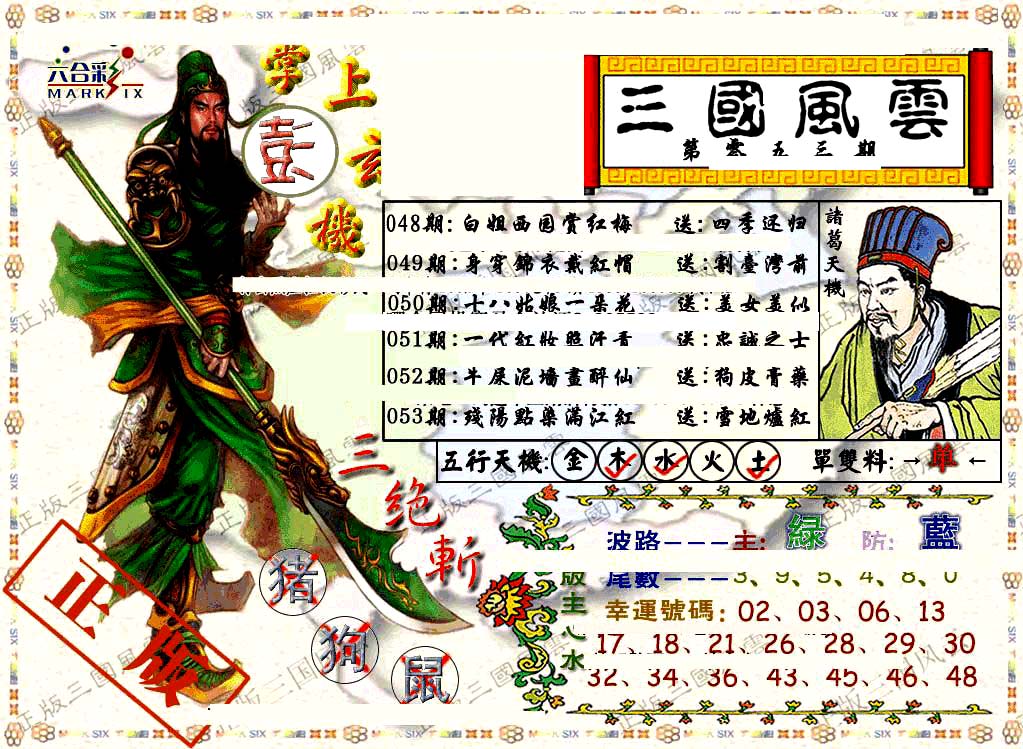 六合彩
MARK SIX
掌上玄機
壹
三國風雲
第零五三期
048期:白姐西园赏红梅 送:四季还归
049期:身穿錦衣戴紅帽 送:割臺灣前
050期:十八姑娘一朵花 送:美女美似
051期:一代紅妝照汗青 送:忠誠之士
052期:牛屎泥墻畫醉仙 送:狗皮膏藥
053期:殘陽點染滿江紅 送:雪地爐紅
諸葛天機
五行天機:金木水火土 單雙料:→单←
三绝斬
猪
狗
鼠
正版
波路---主:緑 防:藍
尾數---3、9、5、4、8、0
版主心水
幸運號碼:02、03、06、13
17、18、21、26、28、29、30
32、34、36、43、45、46、48